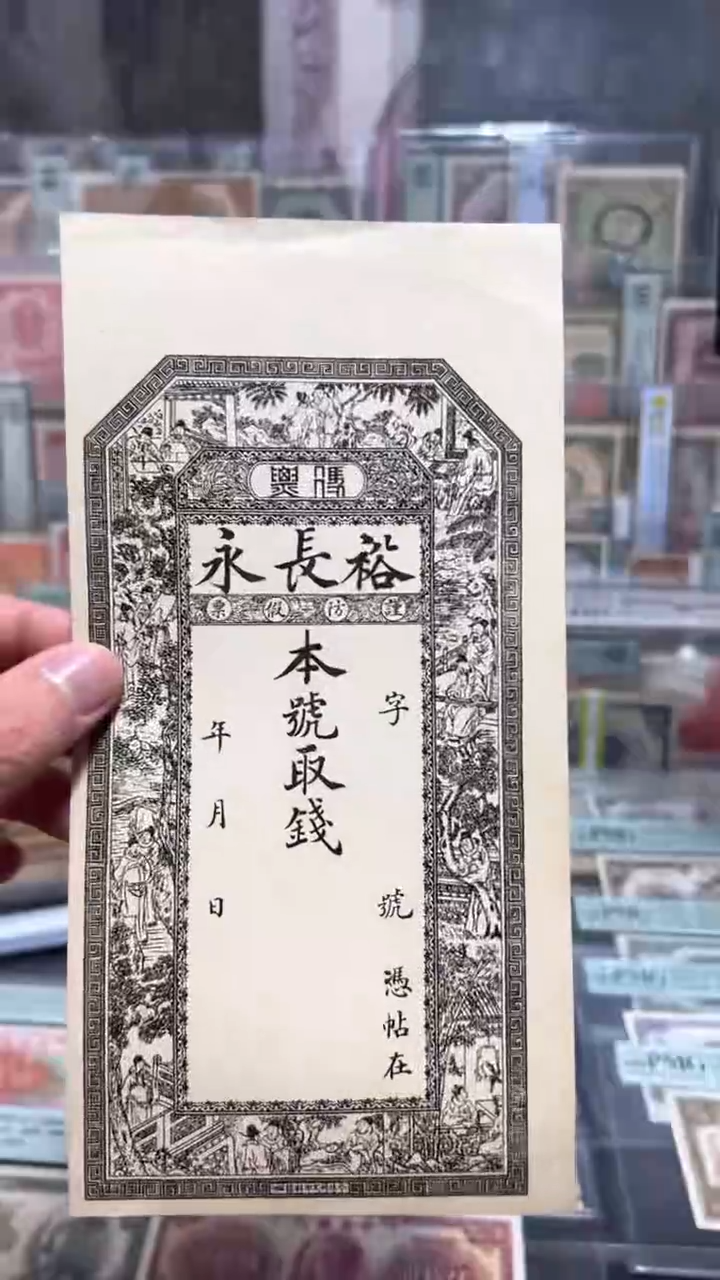 裕長永
謹防假票
字 號 憑帖在
本號取錢
年 月 日